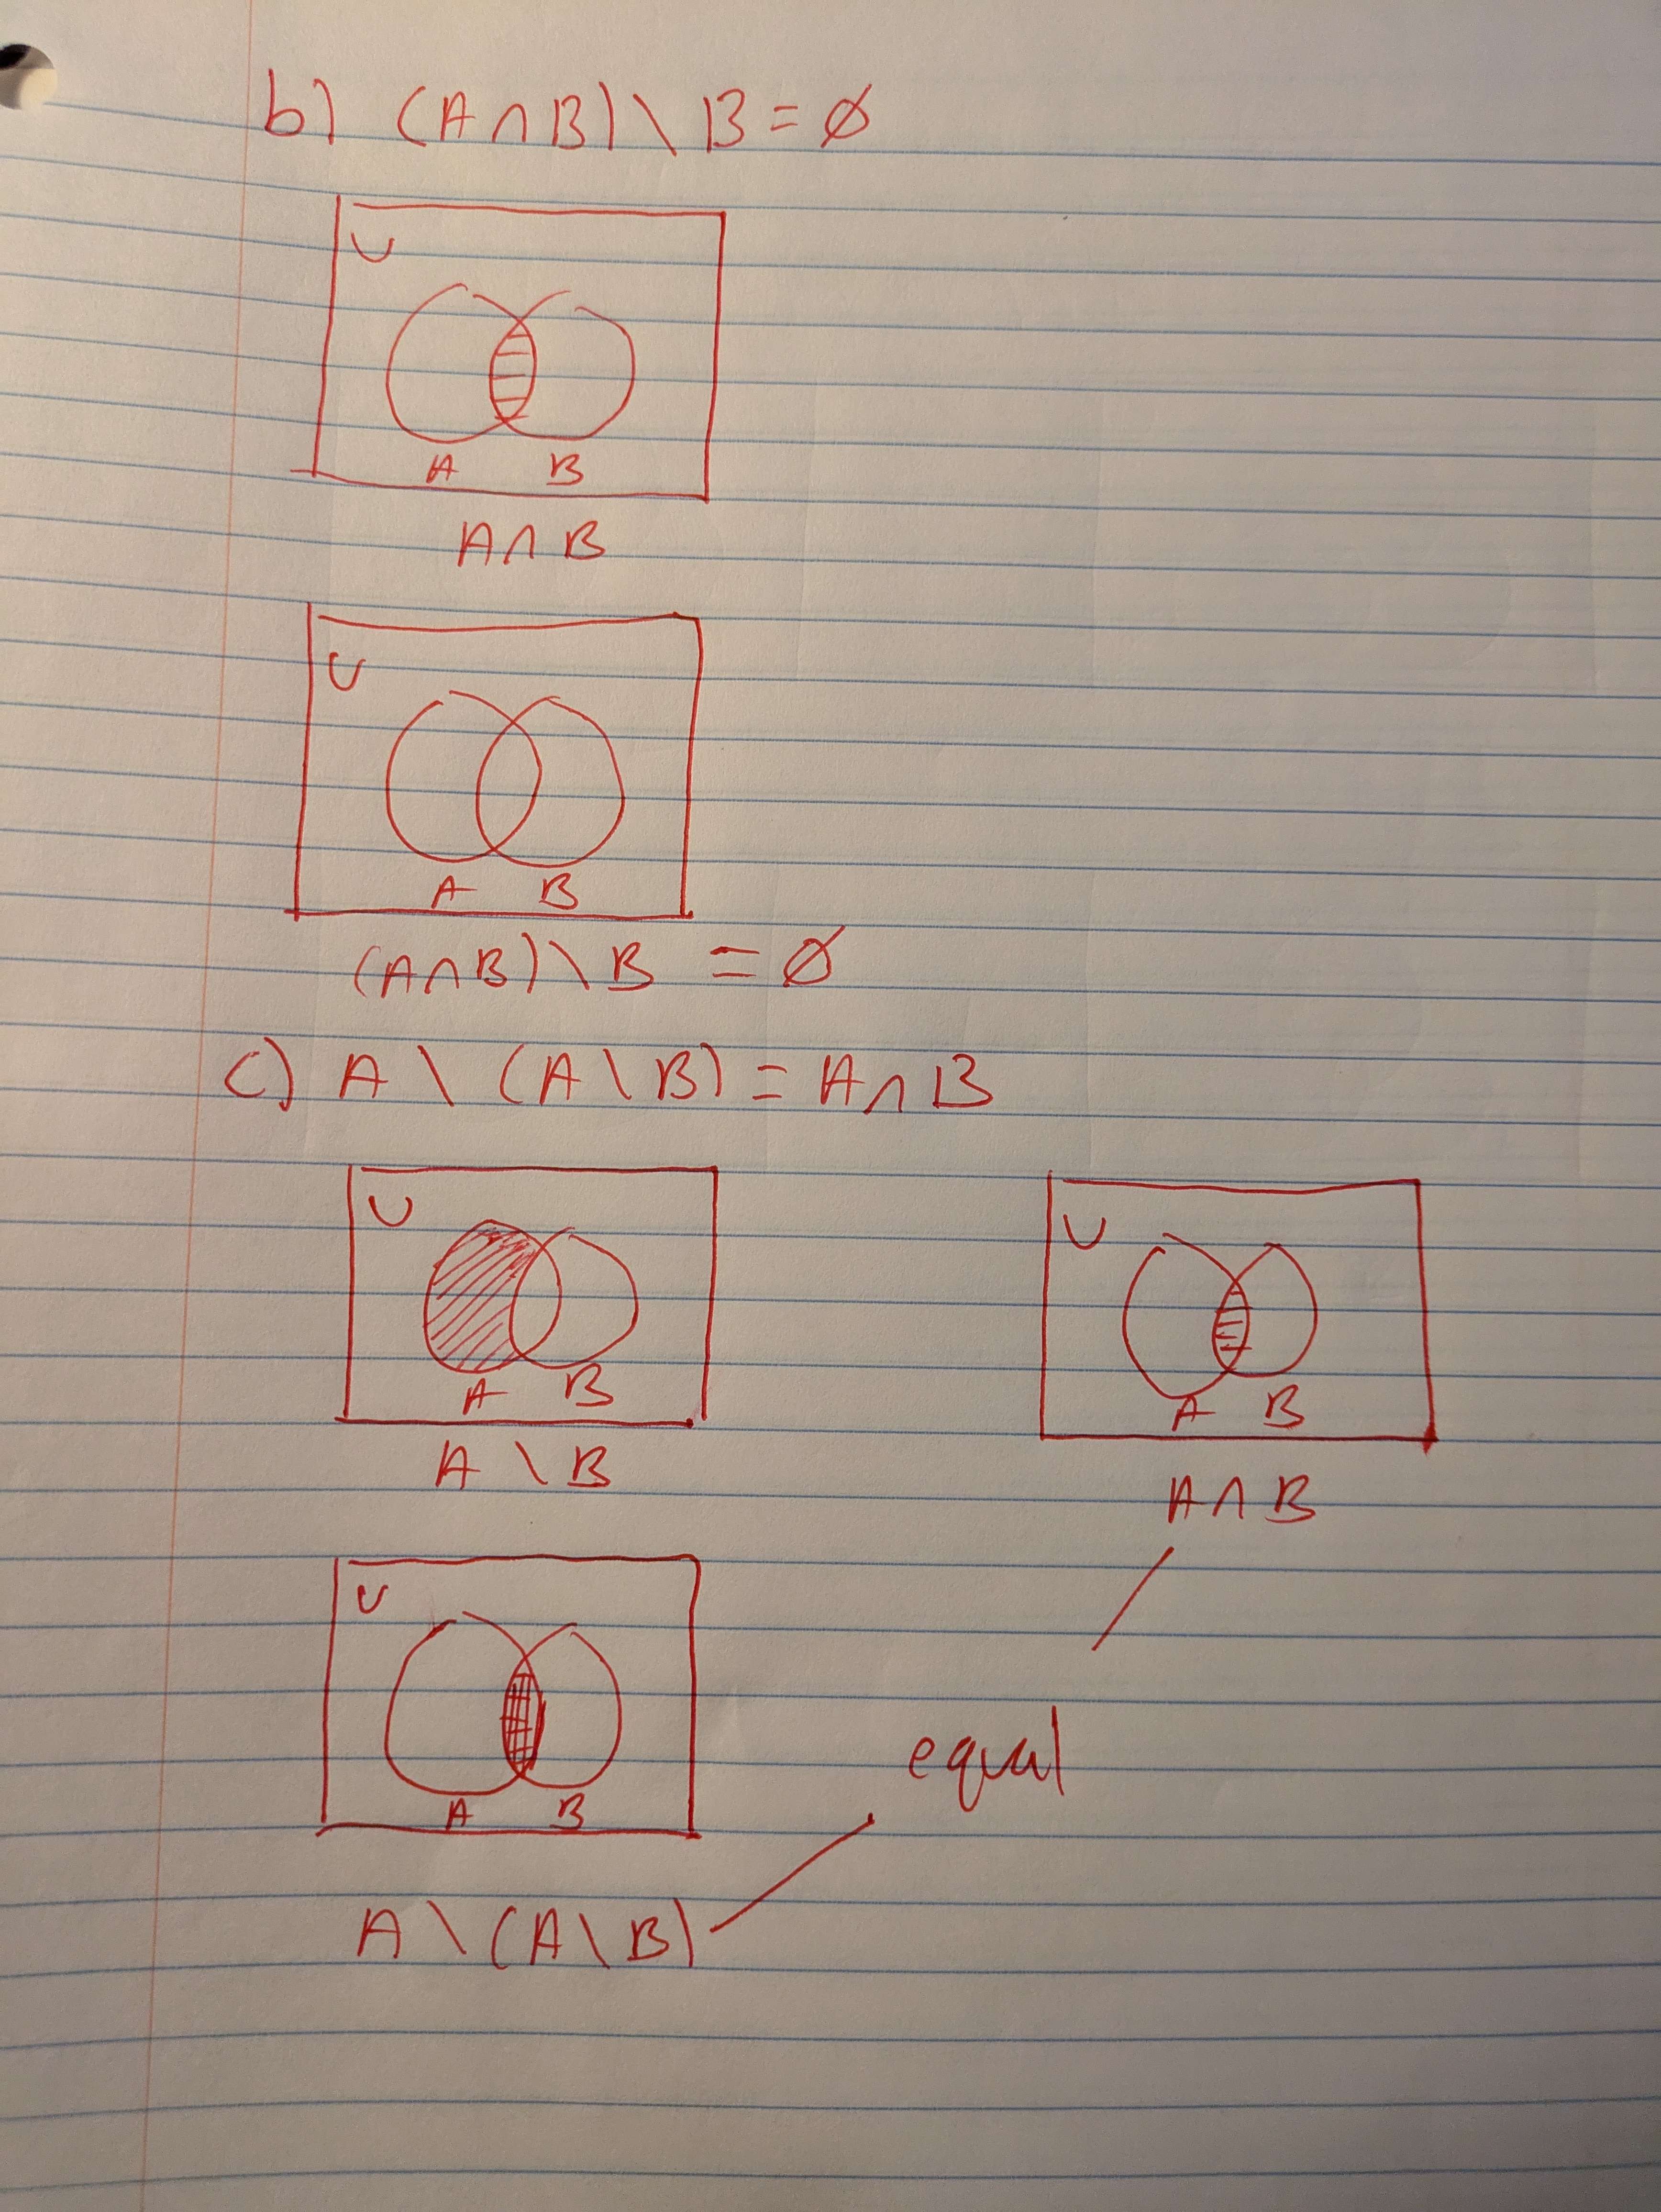 b) (A∩B) \ B = ∅
U
A B
A∩B
U
A B
(A∩B) \ B = ∅
c) A \ (A \ B) = A∩B
U
A B
A \ B
U
A B
A∩B
U
A B
equal
A \ (A \ B)